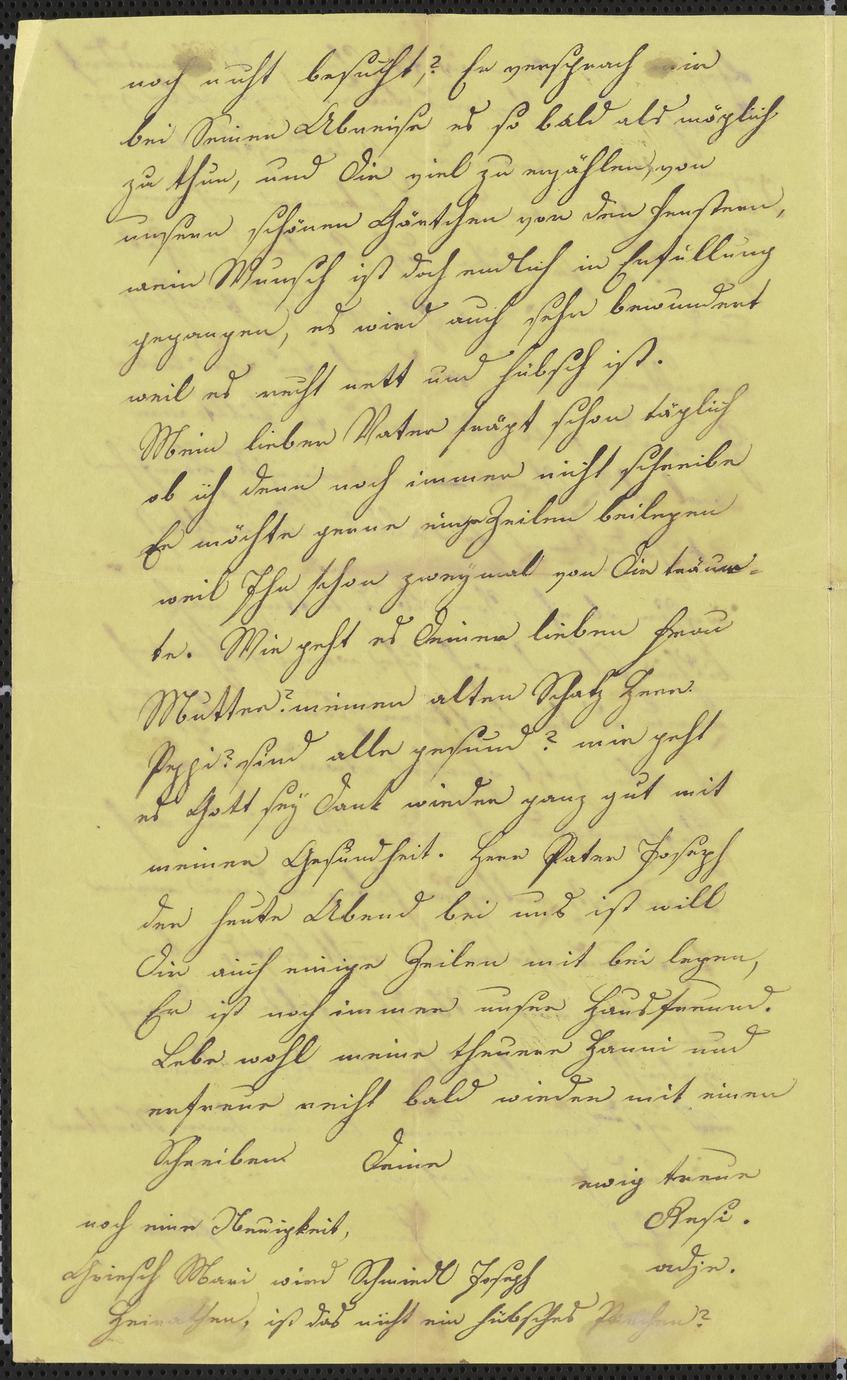 noch nicht besucht,? Er versprach mir
bei Seinen Abreise es so bald als möglich
zu thun, und Dir viel zu erzählen, von
unsern schönen Gärtchen vor den Fenstern,
mein Wunsch ist doch endlich in Erfüllung
gegangen, es wird auch sehr bewundert
weil es recht nett und hübsch ist.
Mein lieber Vater frägt schon täglich
ob ich denn noch immer nicht schreibe
Er möchte gerne einge Zeilen beilegen
weil Ihn schon zweymal von Dir träum-
te. Wie geht es Deiner lieben Frau
Mutter? meinen alten Schatz Herr
Peppi? sind alle gesund? mir geht
es Gott sey Dank wieder ganz gut mit
meiner Gesundheit. Herr Pater Joseph
der heute Abend bei uns ist will
Dir auch einige Zeilen mit bei legen,
Er ist noch immer unser Hausfreund.
Lebe wohl meine theuere Hanni und
erfreue recht bald wieder mit einen
Schreiben Deine
ewig treue
Resi.
adje.
noch eine Neuigkeit,
Griesch Mari wird Schmiedl Joseph
Heirathen, ist das nicht ein hübsches Pärchen?